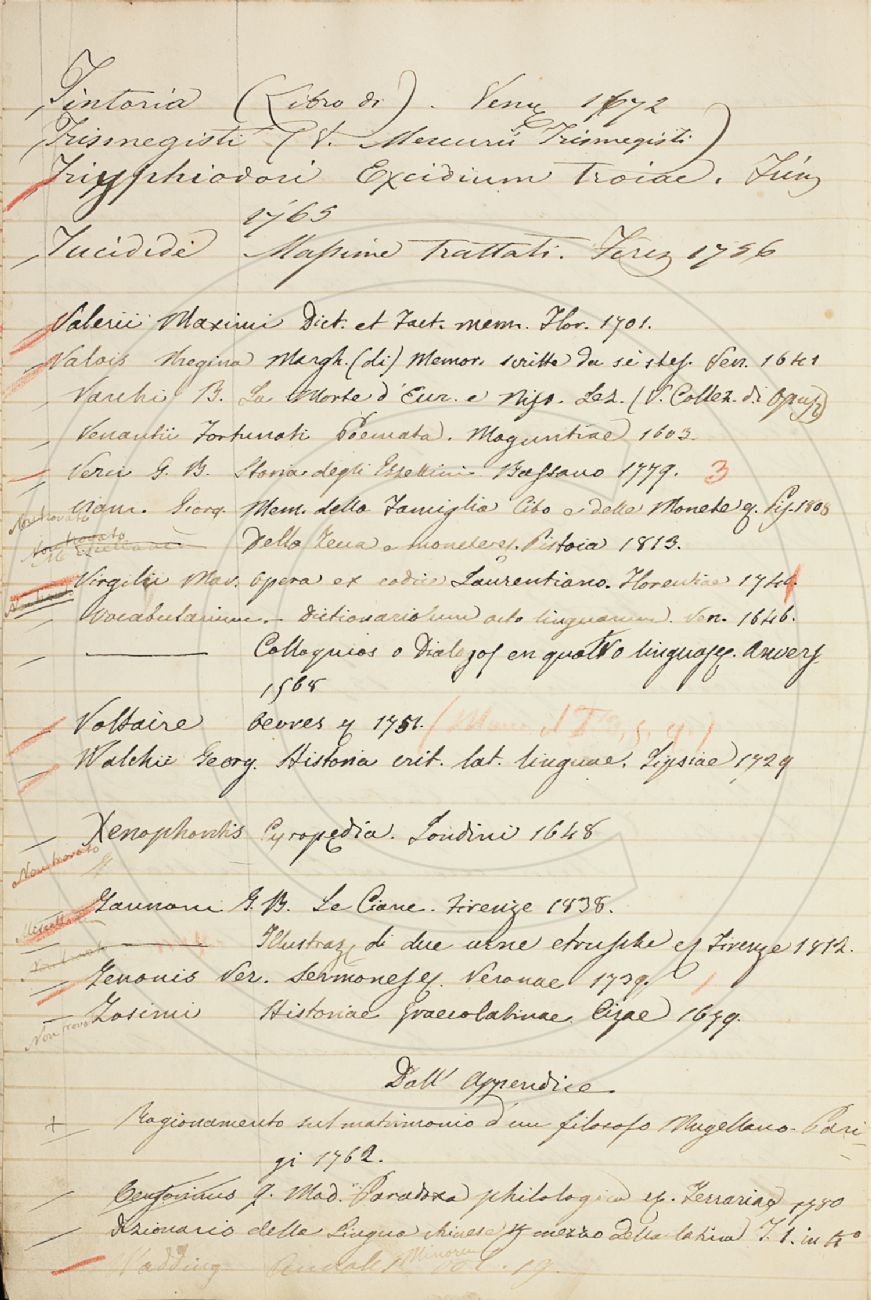 Tintoria (Libro di). Venez 1672
Trismegisti (V. Mercurii Trismegisti)
Triyphiodori Excidium Troiae.
1765
Tucidide Massime trattati. 1756
Valerii Maximi Dict. et Fact. mem. Flor. 1701.
Valois Regina Margh. (di) Memor. scritte da sè stes. Ven. 1641
Varchi B. La Morte d'Eur. e Niso. Lez. (V. Collez. di Opusc)
Venantii Fortunati Poemata. Moguntiae 1603.
Verci G. B. Storia degli Ezzelini. Bassano 1779. 3
Non trovato
Viani Georg Mem. della Famiglia Cibo e delle Monete &. Pis. 1808
Non trovato
Della Zecca e monete &. Pistoia 1813.
Virgilii Mar. Opera ex codice Laurentiano. Florentiae 1741.
Vocabularium. Dictionariolum octo linguarum. Ven. 1646.
Colloquios o Dialogos en quattro linguas &. Anvers
1568
Voltaire Oevres & 1751.
Walchii Georg. Historia crit. lat. linguae. Lipsiae 1729
Xenophontis Cyropędia. Londini 1648
Non trovato
Zannoni G. B. Le Ciane. Firenze 1838.
Illustraz. di due urne etrusche & Firenze 1812.
Zenonis Ver. Sermones &. Veronae 1739.
Zosimi Historiae graecolatinae. Cizae 1679.
Non trovato
Dall' Appendice
Ragionamento sul matrimonio d'un filosofo Mugellano. Pari-
gi 1762.
Censorinus J. Mad. Paradoxa philologica &. Ferrariae 1780
Dizionario della Lingua chinese & mezzo della latina T. 1. in 4°
Wadding Annales Minorum vol. 19.